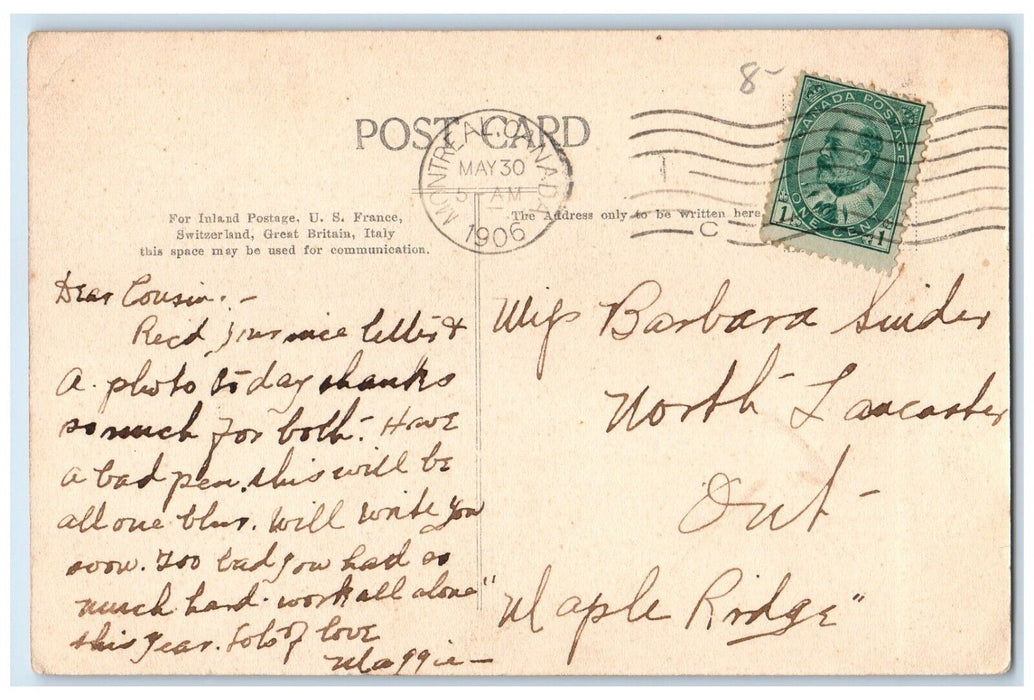 8-
POST CARD
MONTREAL. CANADA
MAY 30
5 AM
1906
C
CANADA POSTAGE
1 1
ONE CENT
For Inland Postage, U. S. France,
Switzerland, Great Britain, Italy
this space may be used for communication.
The Address only to be written here
Dear Cousin. -
Rec'd your nice letter &
a photo to day thanks
so much for both. Have
a bad pen. this will be
all one blur. Will write you
soon. Too bad you had so
much hard work all alone
this year. Lots of love
Maggie -
Miss Barbara Snider
North Lancaster
Ont -
"Maple Ridge"